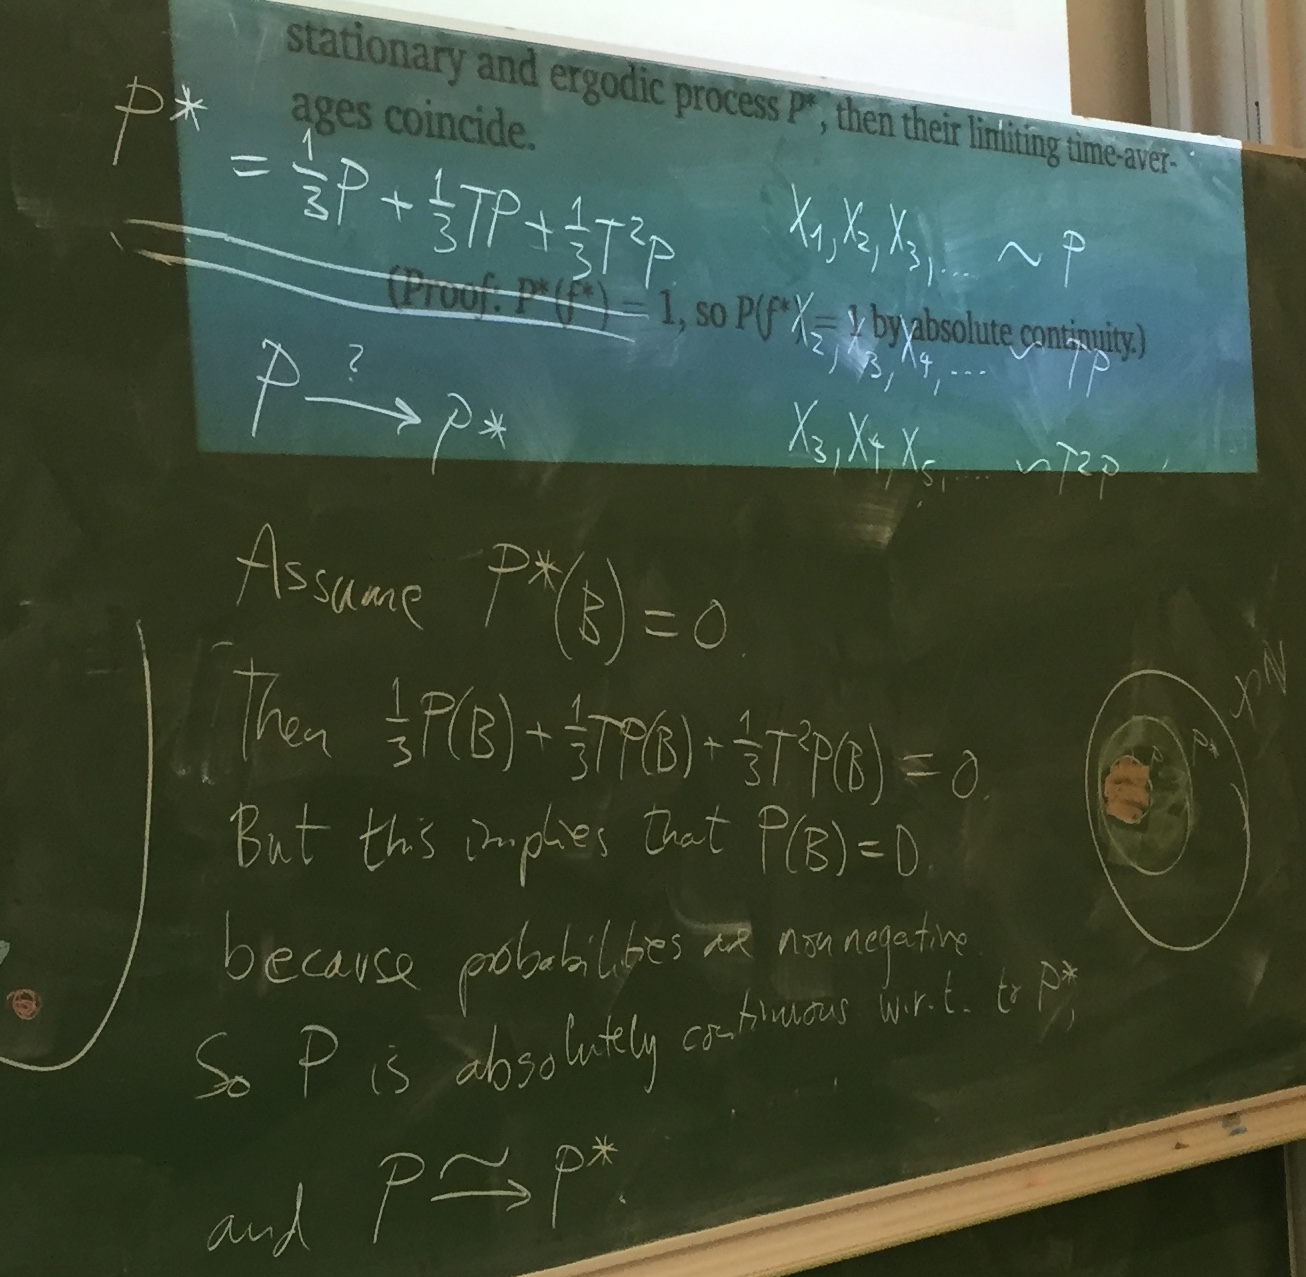 stationary and ergodic process P*, then their limiting time-aver-
ages coincide.
P* = 1/3 P + 1/3 TP + 1/3 T²P
X₁, X₂, X₃, .... ~ P
(Proof: P*(f*) = 1, so P(f*) = 1 by absolute continuity.)
X₂, X₃, X₄, .... ~ TP
P →? P*
X₃, X₄, X₅, .... ~ T²P
Assume P*(B) = 0.
Then 1/3 P(B) + 1/3 TP(B) + 1/3 T²P(B) = 0.
But this implies that P(B) = 0
because probabilities are nonnegative.
So P is absolutely continuous w.r.t. to P*,
and P ⥲ P*.
P
P*